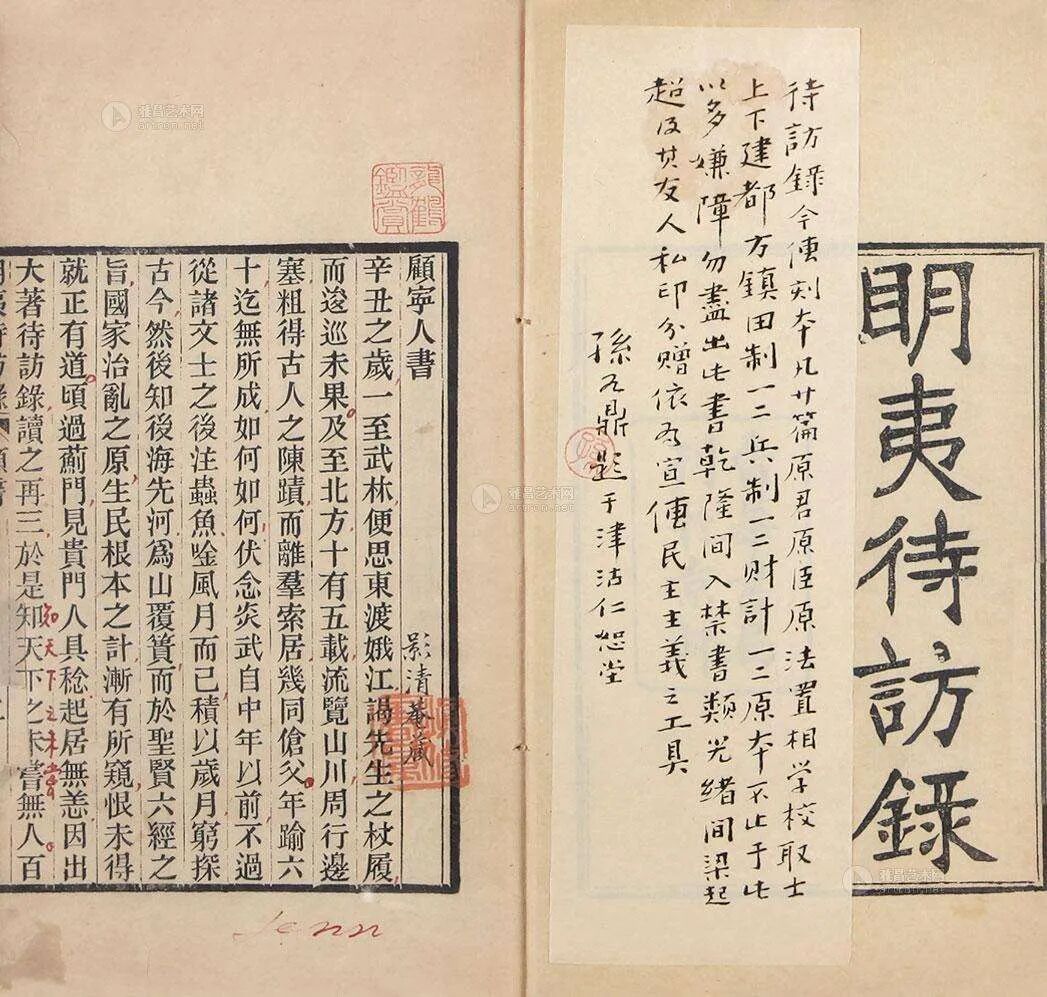 明夷待訪錄
待訪錄今傳刻本凡廿篇原君原臣原法置相学校取士
上下建都方鎮田制一二兵制一二财計一二原本不止于此
以多嫌障勿盡出此書乾隆間入禁書類光緒間梁起
超及其友人私印分贈依為宣傳民主主義之工具
孫鼎題于津沽仁恕堂
龍鶴
鑑賞
顧寧人書
影清菴藏
辛丑之歲一至武林便思東渡娥江謁先生之杖履
而逡巡未果及至北方十有五載流覽山川周行邊
塞粗得古人之陳蹟而離羣索居幾同傖父年踰六
十迄無所成如何如何伏念炎武自中年以前不過
從諸文士之後注蟲魚唫風月而已積以歲月窮探
古今然後知後海先河爲山覆簣而於聖賢六經之
旨國家治亂之原生民根本之計漸有所窺恨未得
就正有道頃過薊門見貴門人具稔起居無恙因出
大著待訪錄讀之再三於是知天下之未嘗無人百
知天下之未嘗
明夷待訪錄 顧書
雅昌艺术网
artron.net
雅昌艺术网
artron.net
雅昌艺术网
artron.net